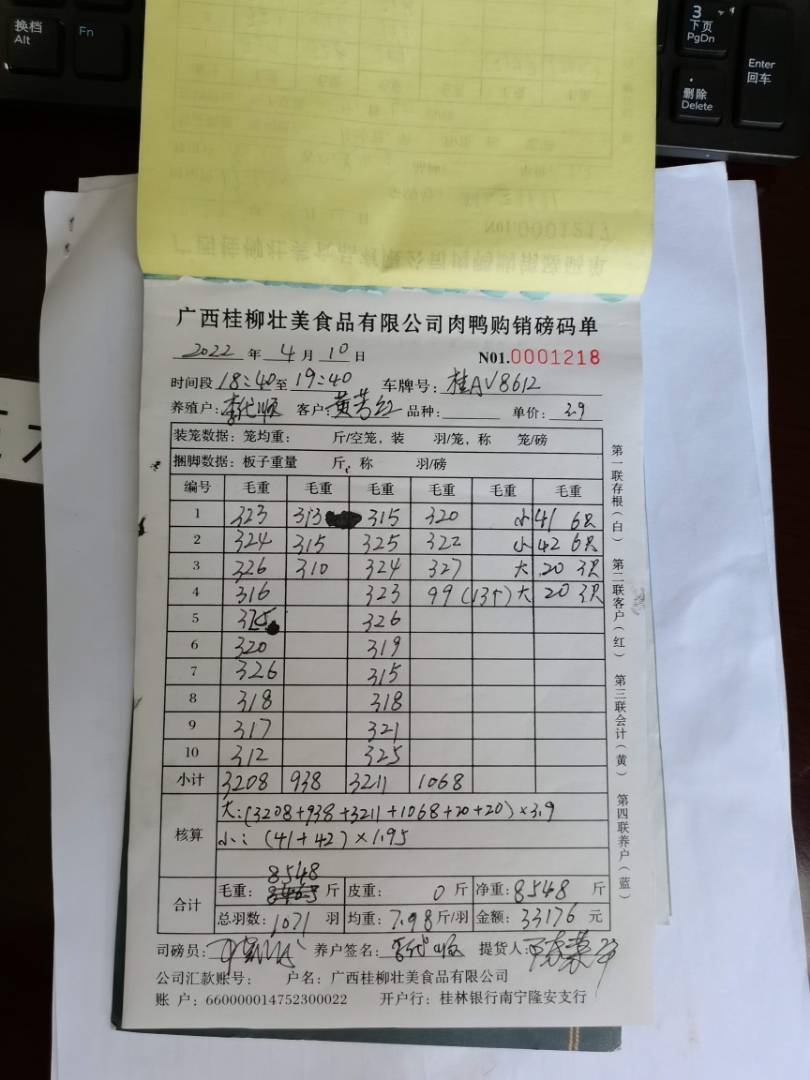 换档
Alt
Fn
3
下页
PgDn
Enter
回车
删除
Delete
广西桂柳壮美食品有限公司肉鸭购销磅码单
2022 年 4 月 10 日 N01.0001218
时间段 18:40 至 19:40 车牌号: 桂AV8612
养殖户: 李代顺 客户: 黄芳红 品种: 单价: 3.9
装笼数据: 笼均重: 斤/空笼, 装 羽/笼, 称 笼/磅
捆脚数据: 板子重量 斤, 称 羽/磅
编号 毛重 毛重 毛重 毛重 毛重 毛重
1 323 313 315 320 小 41 6只
2 324 315 325 322 小 42 6只
3 326 310 324 327 大 20 3只
4 316 323 99 (13个) 大 20 3只
5 326
6 320 319
7 326 315
8 318 318
9 317 321
10 312 325
小计 3208 938 3211 1068
核算 大:(3208+938+3211+1068+20+20)×3.9
小:(41+42)×1.95
合计 毛重: 8548 斤 皮重: 0 斤 净重: 8548 斤
总羽数: 1071 羽 均重: 7.98 斤/羽 金额: 33176 元
司磅员: 养户签名: 李代顺 提货人:
公司汇款账号: 户名: 广西桂柳壮美食品有限公司
账 户: 660000014752300022 开户行: 桂林银行南宁隆安支行
第一联存根(白) 第二联客户(红) 第三联会计(黄) 第四联养户(蓝)